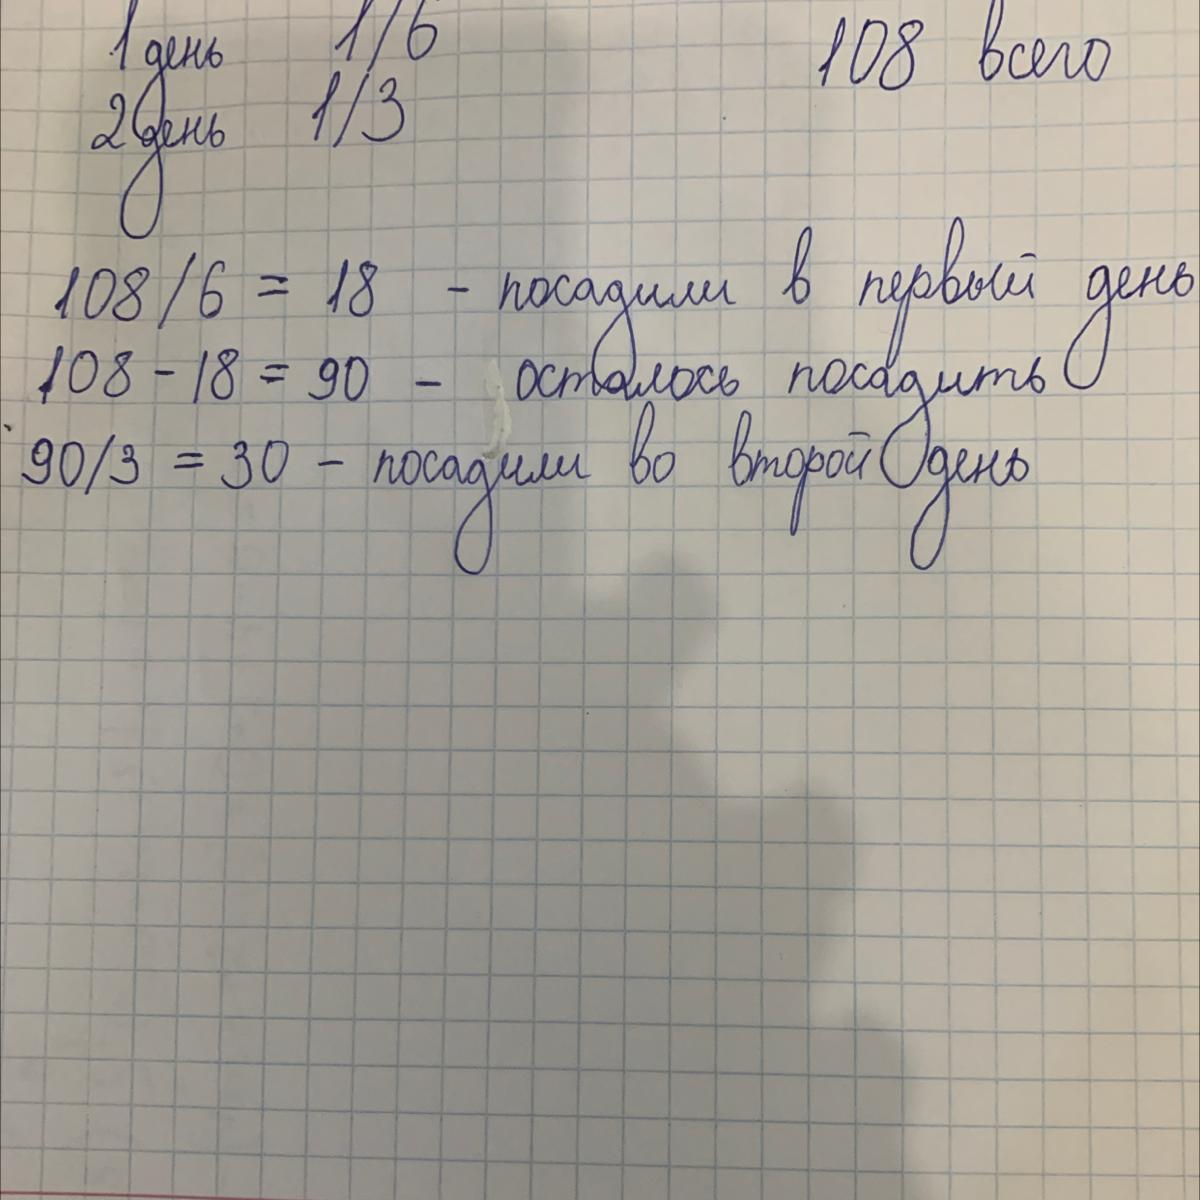 1 день 1/6 108 всего
2 день 1/3
108/6 = 18 - посадили в первый день
108 - 18 = 90 - осталось посадить
90/3 = 30 - посадили во второй день